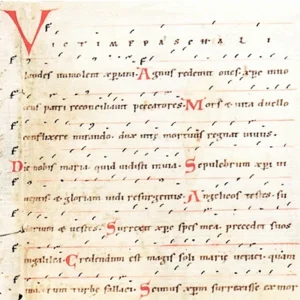 VICTIMĘ PASCHALI
laudes immolent xp̄iani. Agnus redemit oues. xp̄c inno
cens patri reconciliauit peccatores. Mors & uita duello
conflixere mirando. dux uitę mortuus regnat uiuus.
Dic nobis maria. quid uidisti inuia. Sepulchrum xp̄i ui
uentis. & gloriam uidi resurgentis. Angelicos testes. su
darium & uestes. Surrexit xp̄c spes mea. precedet suos
ingalilea. Credendum est magis soli marię ueraci. quam
iudęorum turbę fallaci. Scimus xp̄m surrexisse ex mor